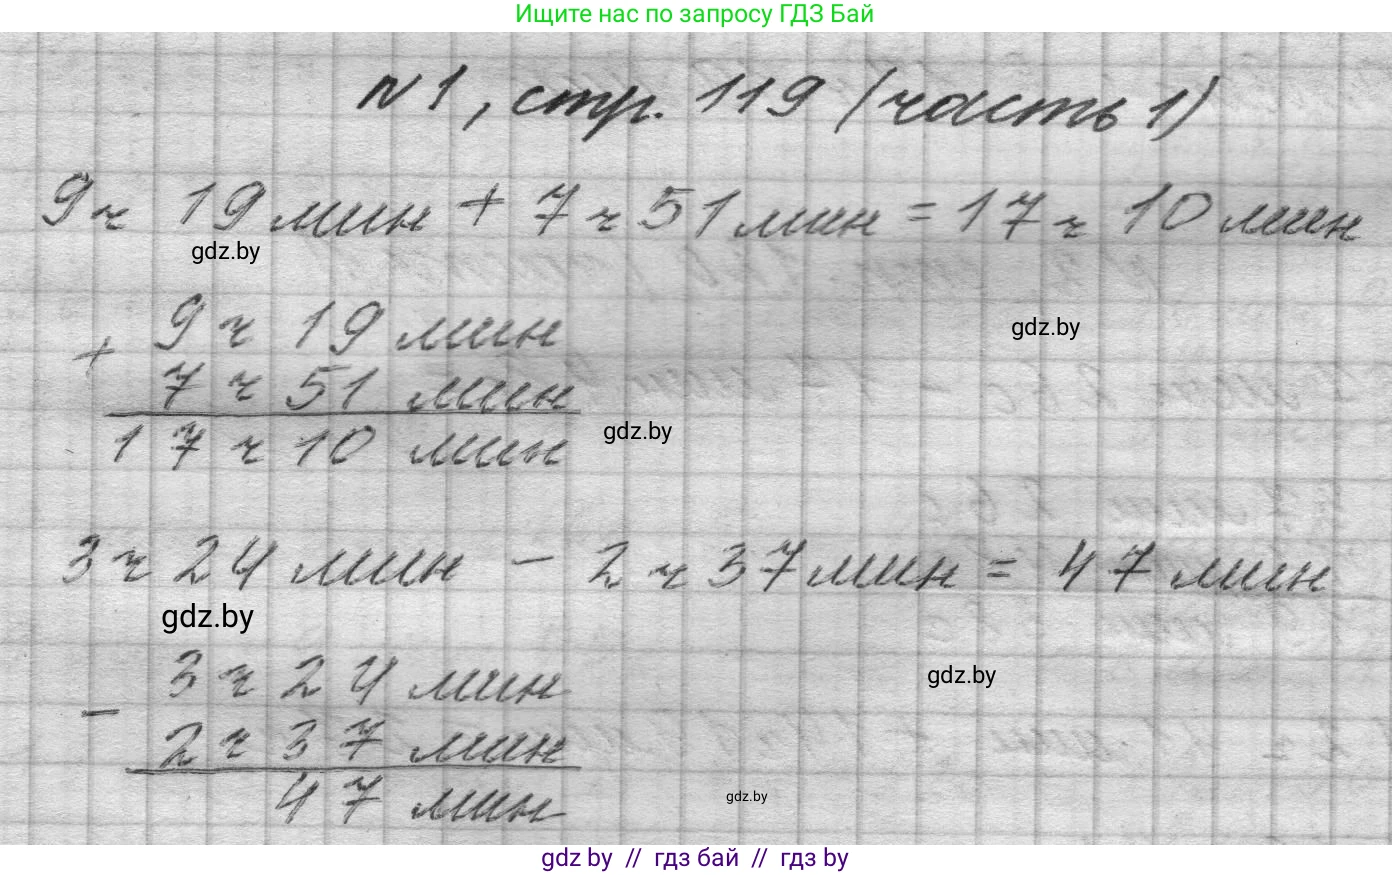 Ищите нас по запросу ГДЗ Бай
№1, стр. 119 (часть 1)
9 ч 19 мин + 7 ч 51 мин = 17 ч 10 мин
gdz.by
9 ч 19 мин
gdz.by
+
7 ч 51 мин
17 ч 10 мин
gdz.by
3 ч 24 мин - 2 ч 37 мин = 47 мин
gdz.by
3 ч 24 мин
gdz.by
-
2 ч 37 мин
47 мин
gdz.by
gdz by // гдз бай // гдз by